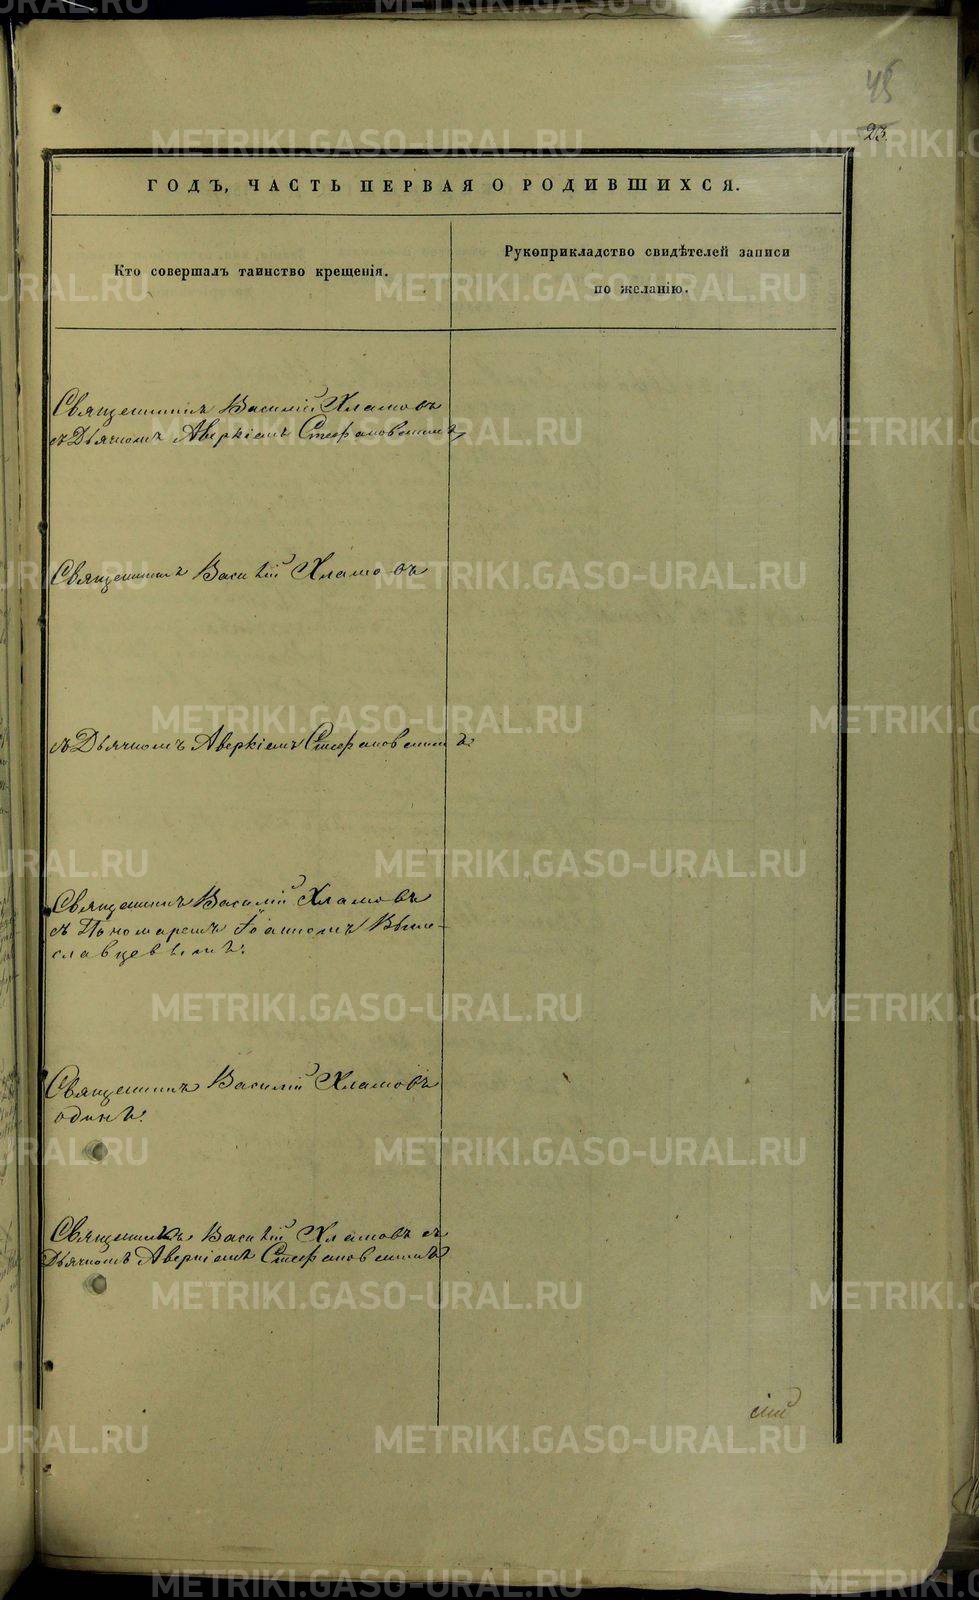 45
23.
ГОДЪ, ЧАСТЬ ПЕРВАЯ О РОДИВШИХСЯ.
Кто совершалъ таинство крещенія.
Рукоприкладство свидѣтелей записи
по желанію.
Священникъ Василій Хламовъ
съ Дьячкомъ Аверкіемъ Стефановскимъ
Священникъ Василій Хламовъ
съ Дьячкомъ Аверкіемъ Стефановскимъ
Священникъ Василій Хламовъ
съ Пономаремъ Іоанномъ Выше-
славцевымъ.
Священникъ Василій Хламовъ
одинъ.
Священникъ Василій Хламовъ съ
Дьячкомъ Аверкіемъ Стефановскимъ
METRIKI.GASO-URAL.RU